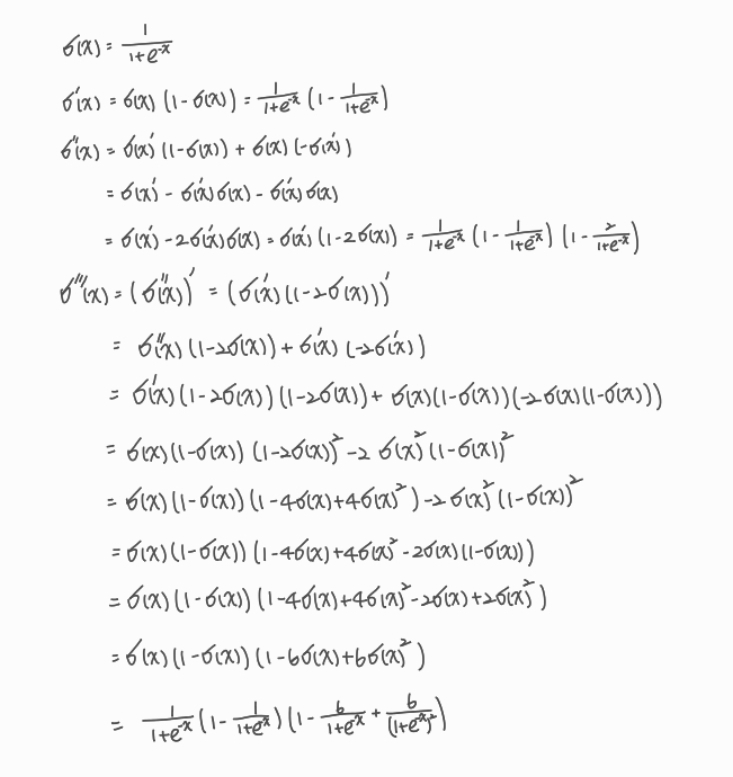 σ(x) = \frac{1}{1+e^{-x}}
σ'(x) = σ(x) (1 - σ(x)) = \frac{1}{1+e^{-x}} (1 - \frac{1}{1+e^{-x}})
σ''(x) = σ(x)' (1 - σ(x)) + σ(x) (-σ(x)')
= σ(x)' - σ(x)' σ(x) - σ(x)' σ(x)
= σ(x)' - 2σ(x)' σ(x) = σ(x)' (1 - 2σ(x)) = \frac{1}{1+e^{-x}} (1 - \frac{1}{1+e^{-x}}) (1 - \frac{2}{1+e^{-x}})
σ'''(x) = (σ''(x))' = (σ'(x) (1 - 2σ(x)))'
= σ''(x) (1 - 2σ(x)) + σ'(x) (-2σ'(x))
= σ'(x) (1 - 2σ(x)) (1 - 2σ(x)) + σ(x)(1 - σ(x)) (-2σ(x)(1 - σ(x)))
= σ(x)(1 - σ(x)) (1 - 2σ(x))^2 - 2 σ(x)^2 (1 - σ(x))^2
= σ(x) (1 - σ(x)) (1 - 4σ(x) + 4σ(x)^2) - 2 σ(x)^2 (1 - σ(x))^2
= σ(x) (1 - σ(x)) (1 - 4σ(x) + 4σ(x)^2 - 2σ(x) (1 - σ(x)))
= σ(x) (1 - σ(x)) (1 - 4σ(x) + 4σ(x)^2 - 2σ(x) + 2σ(x)^2)
= σ(x) (1 - σ(x)) (1 - 6σ(x) + 6σ(x)^2)
= \frac{1}{1+e^{-x}} (1 - \frac{1}{1+e^{-x}}) (1 - \frac{6}{1+e^{-x}} + \frac{6}{(1+e^{-x})^2})